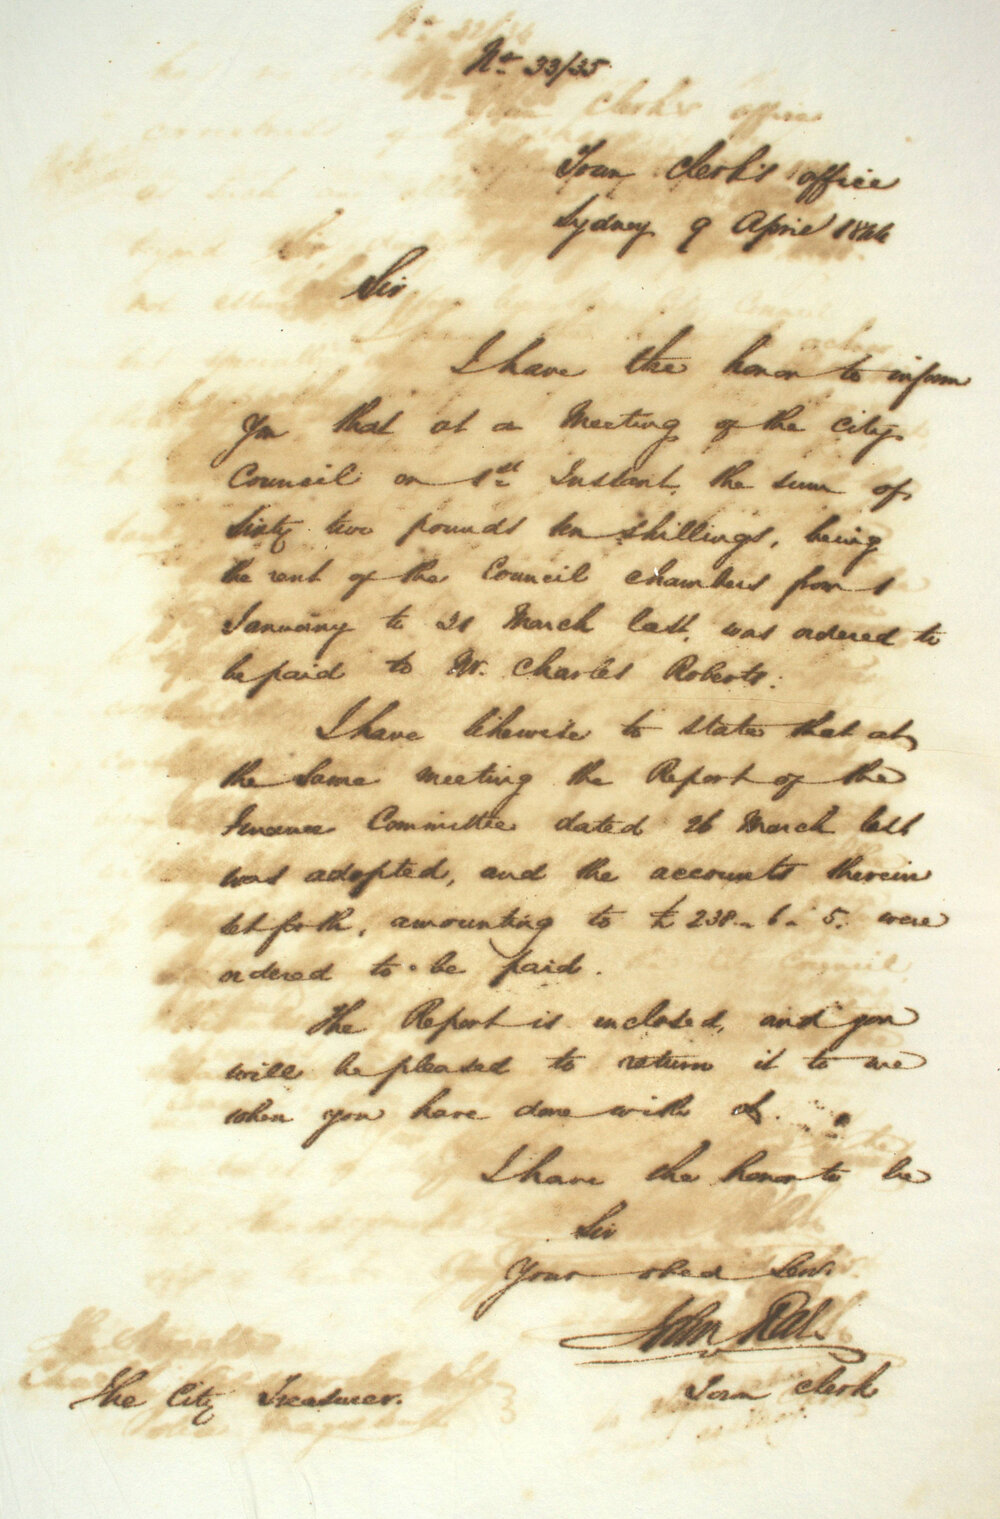 No. 33/35
Town Clerk's office
Sydney 9 April 1844
Sir
I have the honor to inform
you that at a Meeting of the City
Council on 1st Instant, the sum of
Sixty two pounds ten shillings, being
the rent of the Council chambers from 1
January to 31 March last, was ordered to
be paid to Mr. Charles Roberts.
I have likewise to state that at
the same meeting the Report of the
Finance Committee dated 26 March last
was adopted, and the accounts therein
set forth, amounting to £238-6-5. were
ordered to be paid.
The Report is enclosed, and you
will be pleased to return it to me
when you have done with it.
I have the honor to be
Sir
Your obed Serv.
John
Town Clerk
The City Treasurer.